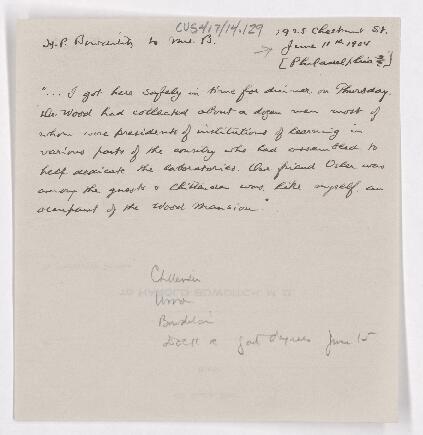 CUS417/14.129
H.P. Bowditch to Mrs. B.
1925 Chestnut St.
June 11th 1904
[Philadelphia]
"... I got here safely in time for dinner on Thursday.
Dr. Wood had collected about a dozen men most of
whom were presidents of institutions of learning in
various parts of the country who had assembled to
help dedicate the laboratories. Our friend Osler was
among the guests & Chittenden was, like myself, an
occupant of the Wood Mansion."
Chittenden
Bowditch
got degrees June 15
TO HAROLD BOWDITCH, M.D.